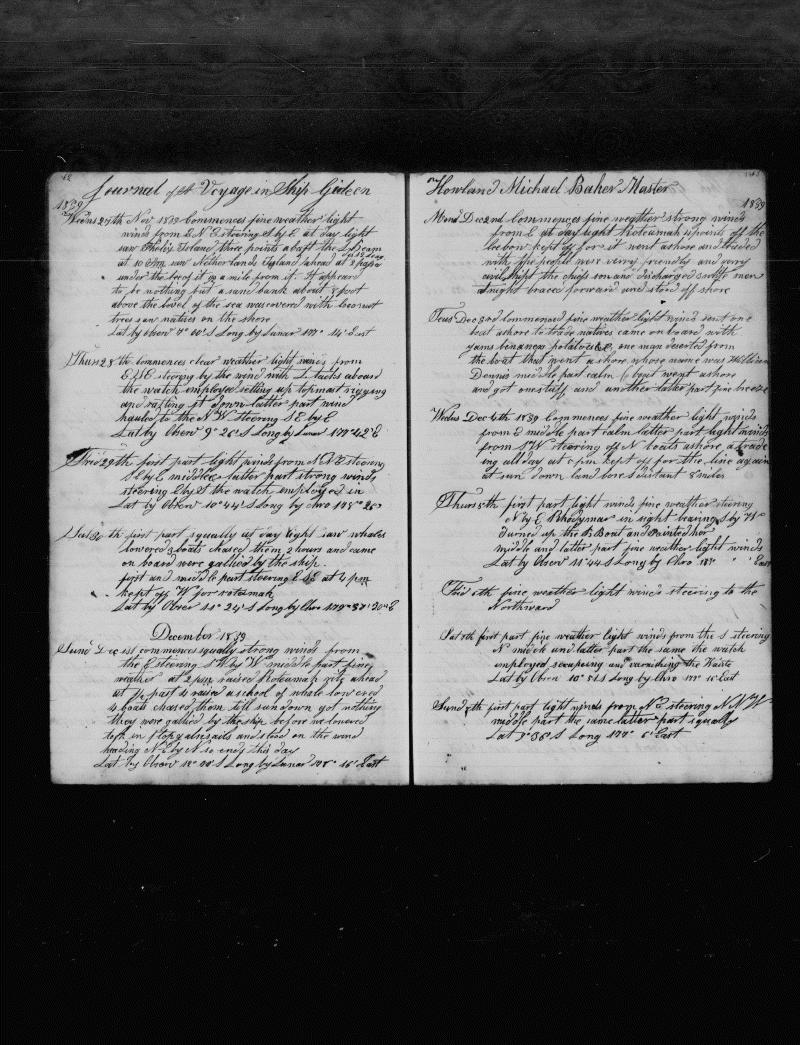 Journal of A Voyage in Ship Gideon
1839
Wedns 27th Nov 1839 Commences fine weather light
winds from E N E steering S by E at day light
saw Island three points abaft the L Beam
at 10 Am saw Netherlands Island ahead at 2 passd
under the lee of it a mile from it It appeard
to be nothing but a sand bank about 8 foot
above the level of the sea was coverd with coconut
trees saw natives on the shore
Lat by Obsen 7° 00' S Long by Lunar 177° 14' East
Thurs 28th commences clear weather light winds from
E S E steering by the wind with L tacks aboard
the watch employed setting up topmast rigging
and ratling it down latter part wind
hauled to the N W steering S E by E
Lat by Obsen 9° 26' S Long by Lunar 177° 42' E
Frid 29th first part light winds from N N E steering
S E by E middle & latter part strong winds
steering E by S the watch employed in
Lat by Obsen 10° 44' S Long by Chro 178° 20'
Sat 30th first part squally at day light saw whales
lowered 3 boats chased them 2 hours and came
on board were gallied by the ship
first and middle part steering E S E at 4 pm
kept off W for rotumah
Lat by Obsen 11° 24' S Long by Chro 179° 37' 30" E
December 1839
Sund Dec 1st commences squally strong winds from
the E steering S W by W middle part fine
weather at 2 pm raised Roteumah right ahead
at ½ past 4 raised a school of whale lowered
4 boats chased them till sundown got nothing
they were gallied by the ship before we lowered
took in f top gallnsails and stood on the wind
heading N E by N so ends this day
Lat by Obsen 12° 20' S Long by Lunar 178° 16' East
Howland Michael Baker Master
1839
Mond Dec 2nd Commences fine weather strong winds
from E at day light Roteumah 4 points off the
lee bow kept off for it went ashore and traded
with the people were verry friendly and very
civil shipt the chiefs son and discharged men
at night braced forward and stood off shore
Teus Dec 3rd commenced fine weather light winds sent one
boat ashore to trade natives came on board with
yams bananas potatoes &c, one man deserted from
the boat that went ashore whose name was William
Dennis middle part calm boat went ashore
and got one stuff and another latter part fine breeze
Wedns Dec 4th 1839 Commences fine weather light winds
from E middle part calm latter part light winds
from S W steering off N boats ashore a trade
ing all day at 5 pm kept off for the line again
at sun down land bore S distant 8 miles
Thurs 5th first part light winds fine weather steering
N by E Rhodymar in sight bearing S by W
Turned up the B Boat and Painted her
middle and latter part fine weather light winds
Lat by Obsen 11° 44 S Long by Chro 177° " " East
Frid 6th fine weather light winds steering to the
Northward
Sat 7th first part fine weather light winds from the S steering
N middle and latter part the same the watch
employed scraping and varnishing the Waists
Lat by Obsen 10° 51 S Long by Chro 177° 10' East
Sund 8th first part light winds from N E steering N N W
middle part the same latter part squally
Lat 9° 36' S Long 177° 6' East